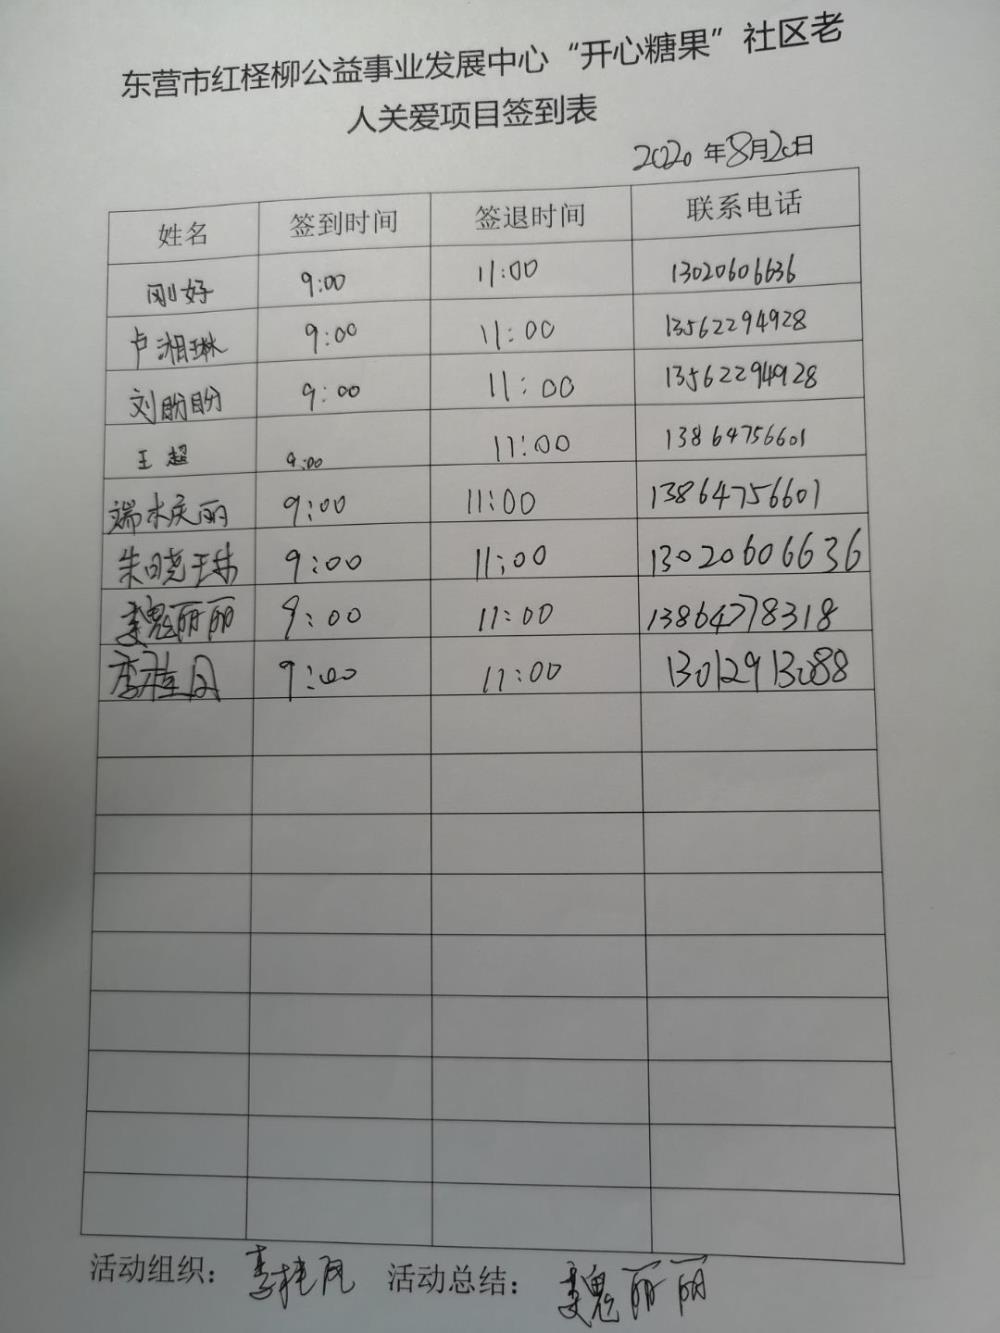 东营市红柽柳公益事业发展中心“开心糖果”社区老
人关爱项目签到表
2020年8月20日
姓名 签到时间 签退时间 联系电话
刚好 9:00 11:00 13020606636
卢湘琳 9:00 11:00 13562294928
刘盼盼 9:00 11:00 13562294928
王超 9:00 11:00 13864756601
端木庆丽 9:00 11:00 13864756601
朱晓琳 9:00 11:00 13020606636
魏丽丽 9:00 11:00 13864778318
李桂 9:00 11:00 13012913088
活动组织：李桂 活动总结：魏丽丽